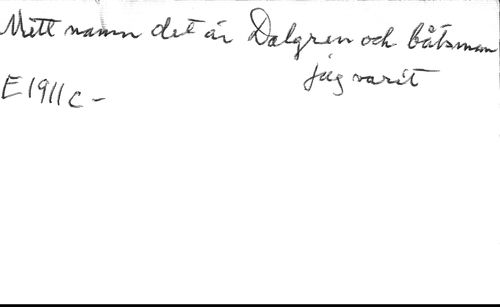 Mitt namn det är Dalgren och båtsman
jag varit
E1911C-